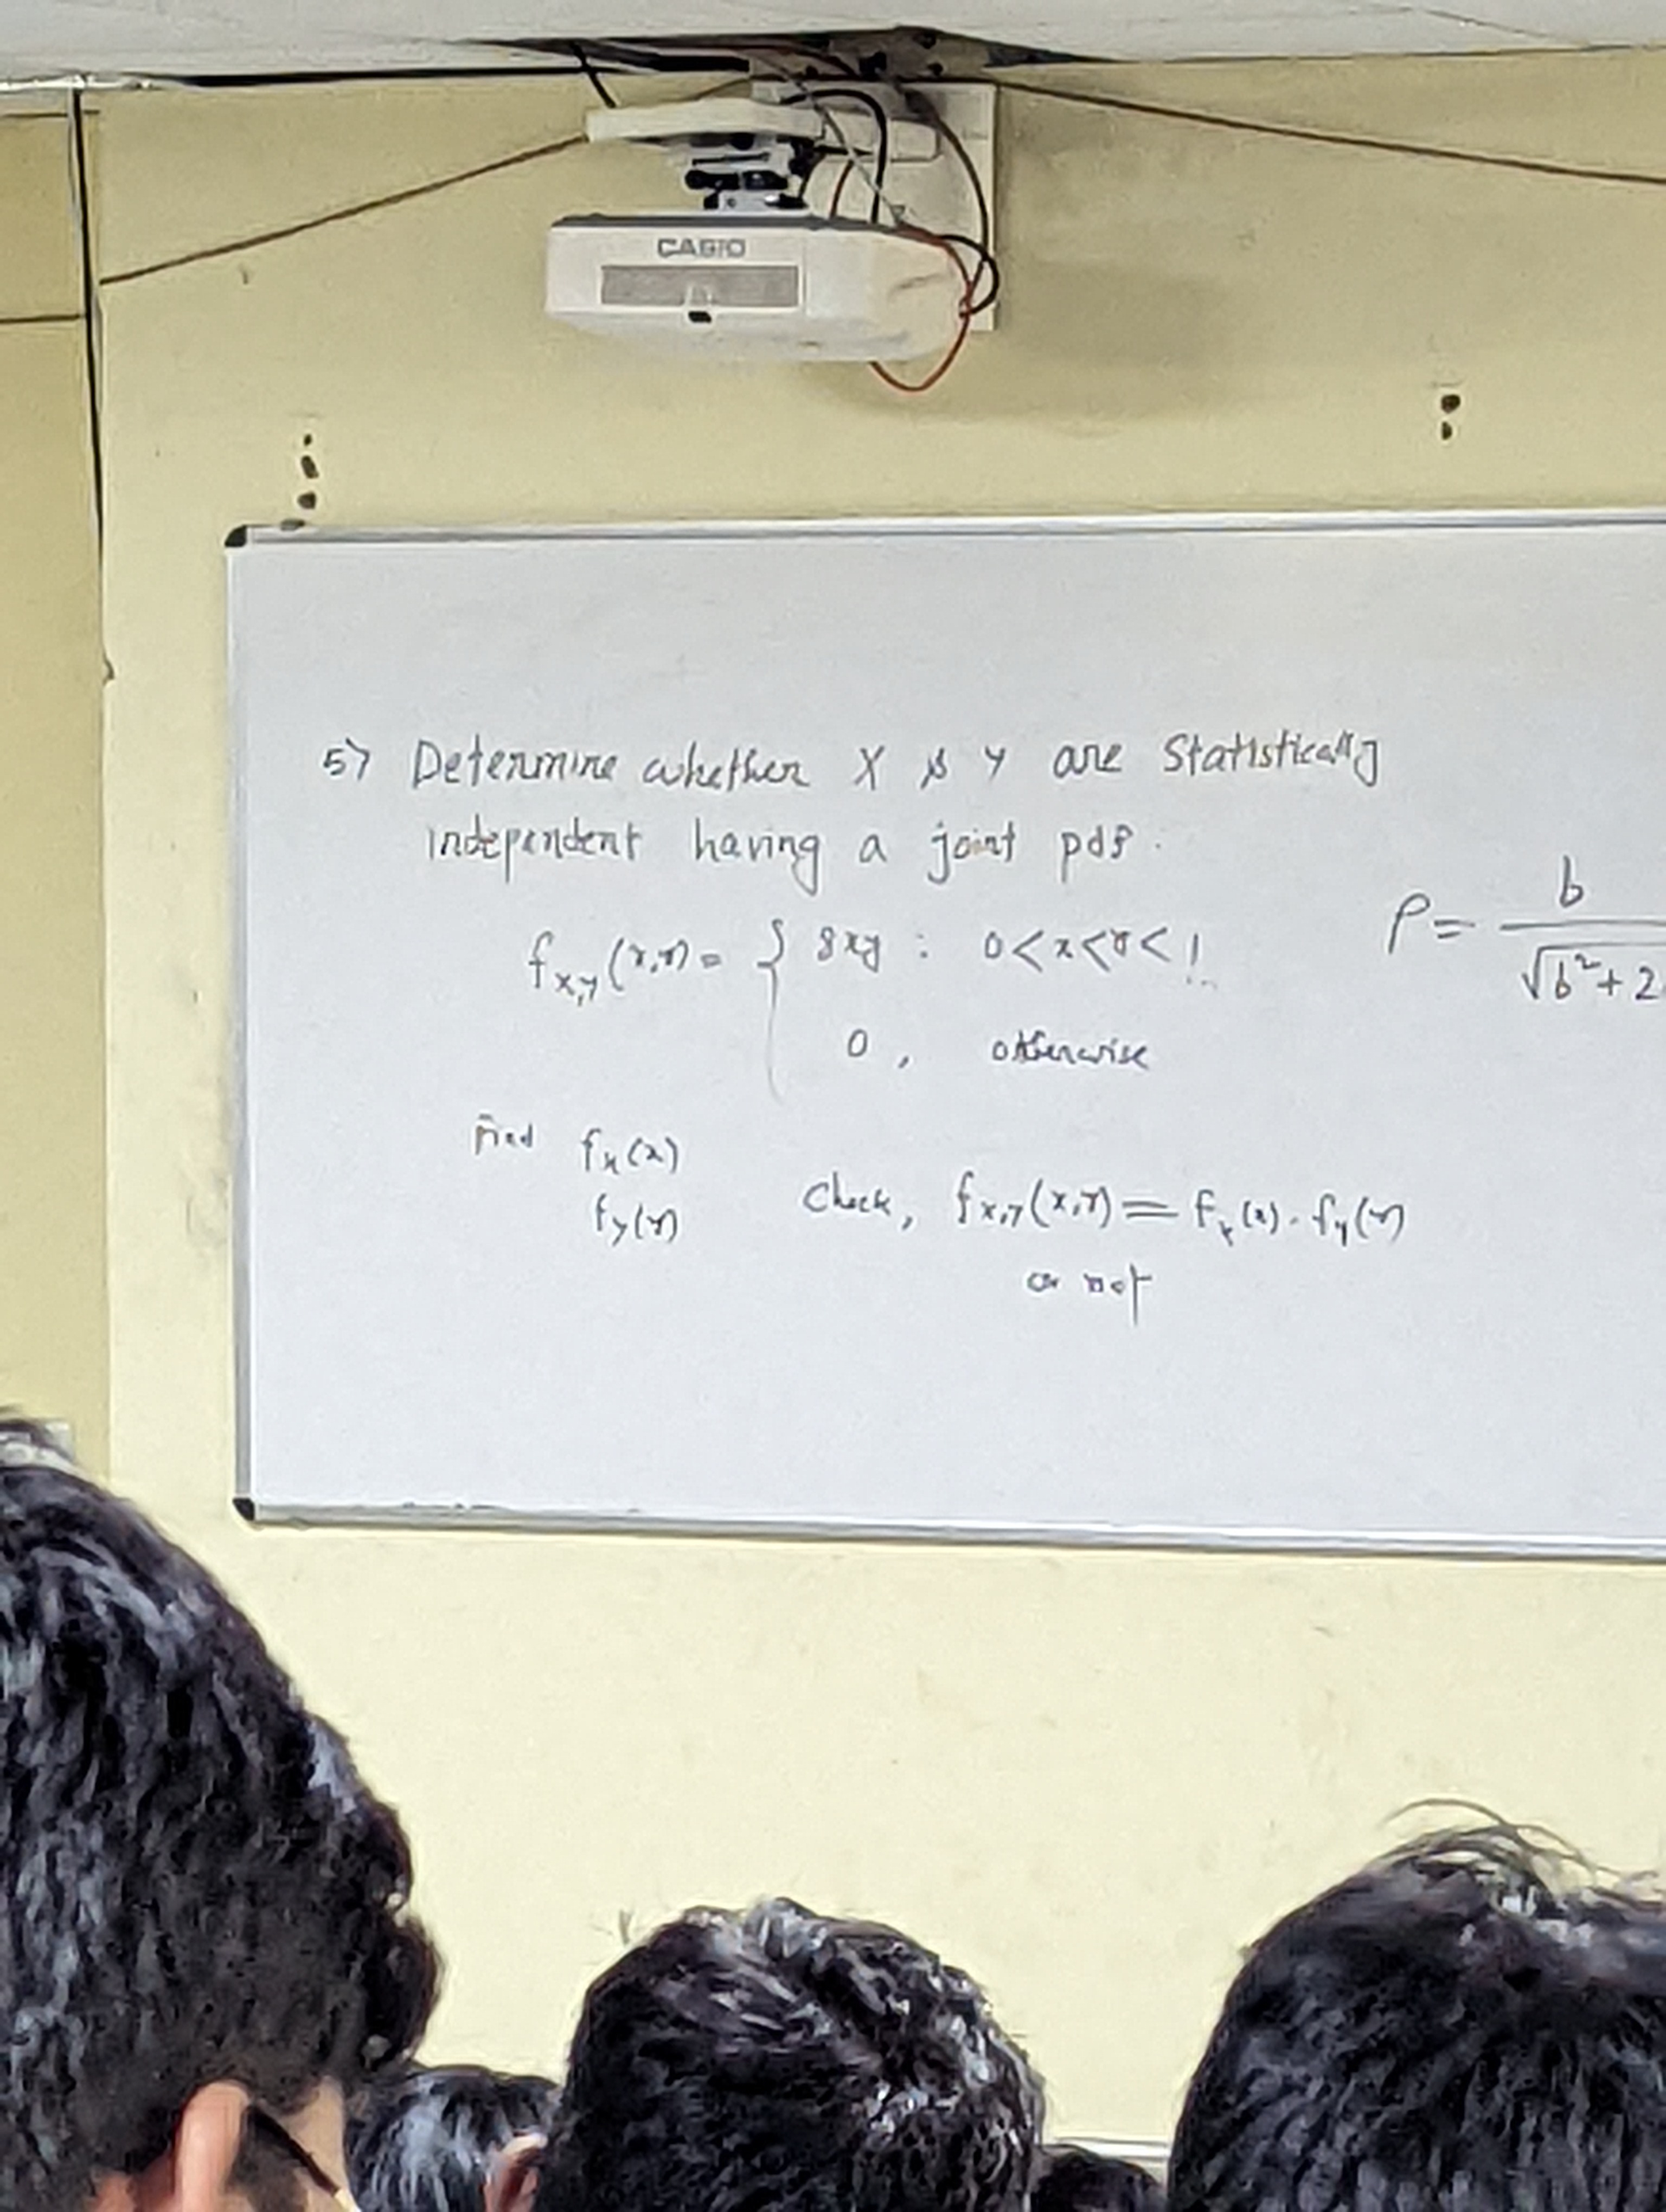 CASIO
5> Determine whether X & Y are Statistically
independent having a joint pdf.
f_{X,Y}(x,y) = { 8xy : 0<x<y<1
0, otherwise
Find f_X(x)
f_Y(y)
Check, f_{X,Y}(x,y) = f_X(x) . f_Y(y)
or not
ρ = b
√b²+2